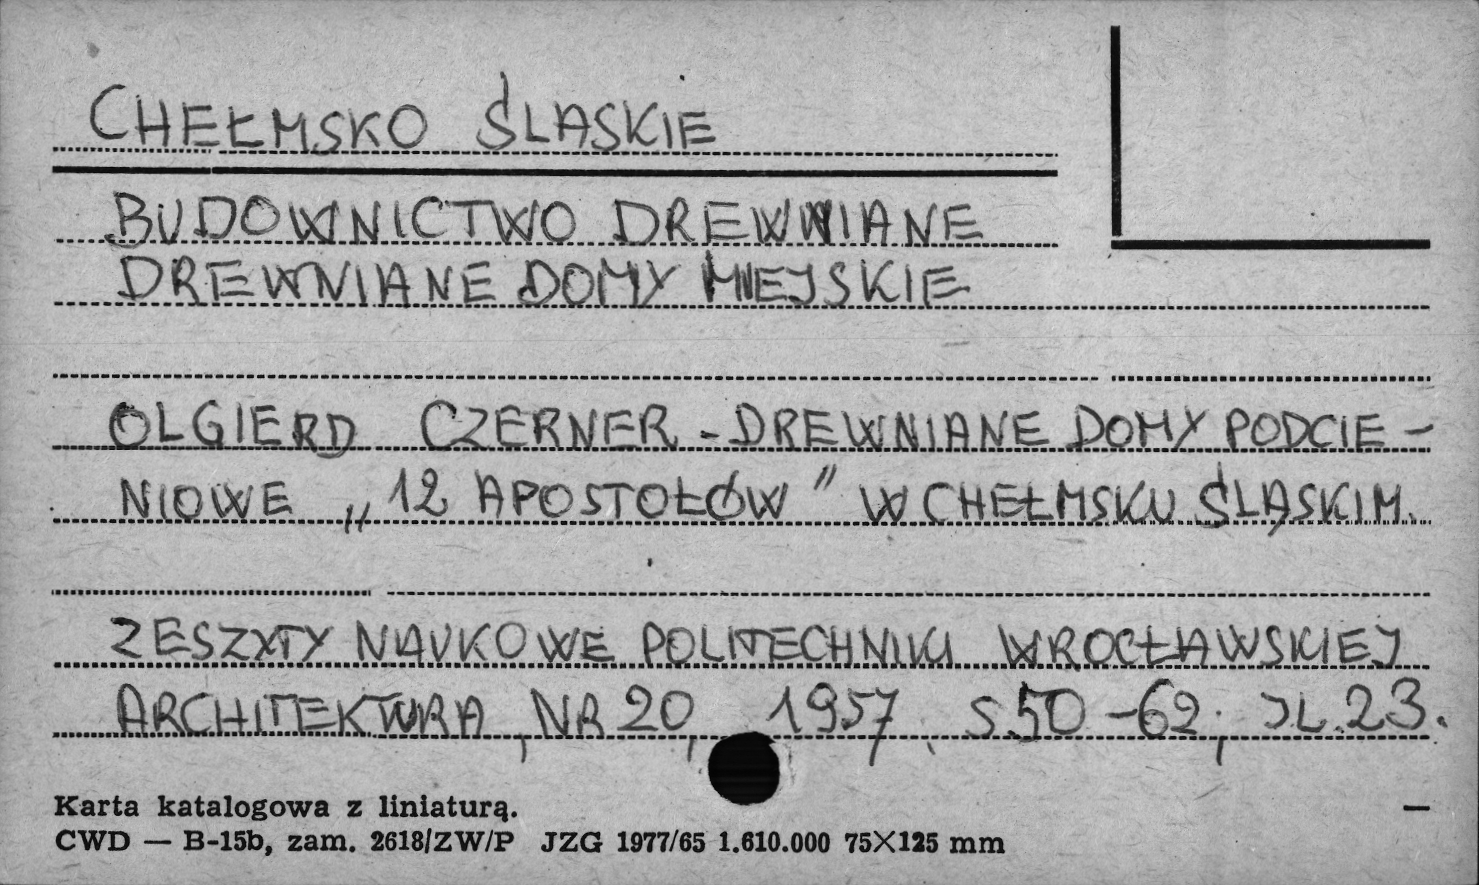 CHEŁMSKO ŚLASKIE
BUDOWNICTWO DREWNIANE
DREWNIANE DOMY MIEJSKIE
OLGIERD CZERNER - DREWNIANE DOMY PODCIE-
NIOWE „12 APOSTOŁÓW" W CHEŁMSKU ŚLĄSKIM.
ZESZYTY NAUKOWE POLITECHNIKI WROCŁAWSKIEJ
ARCHITEKTURA, NR 20, 1957, S.50-62, IL.23.
Karta katalogowa z liniaturą.
CWD — B-15b, zam. 2618/ZW/P JZG 1977/65 1.610.000 75×125 mm